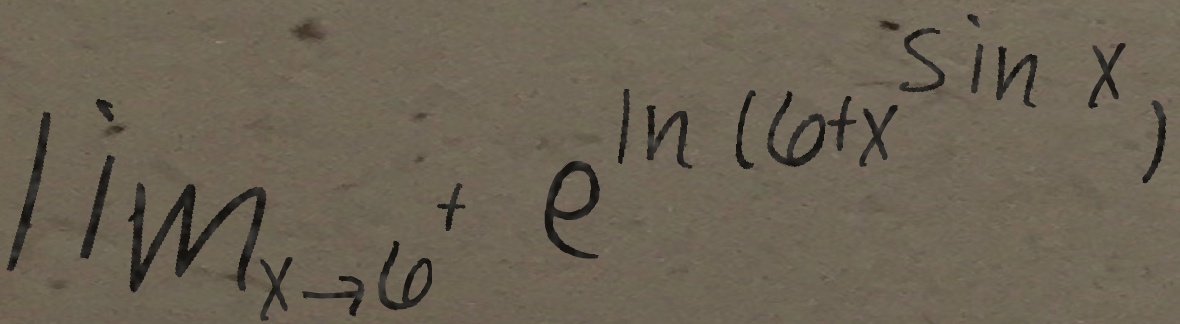 \lim_{x \to 6^+} e^{\ln (6+x^{\sin x})}